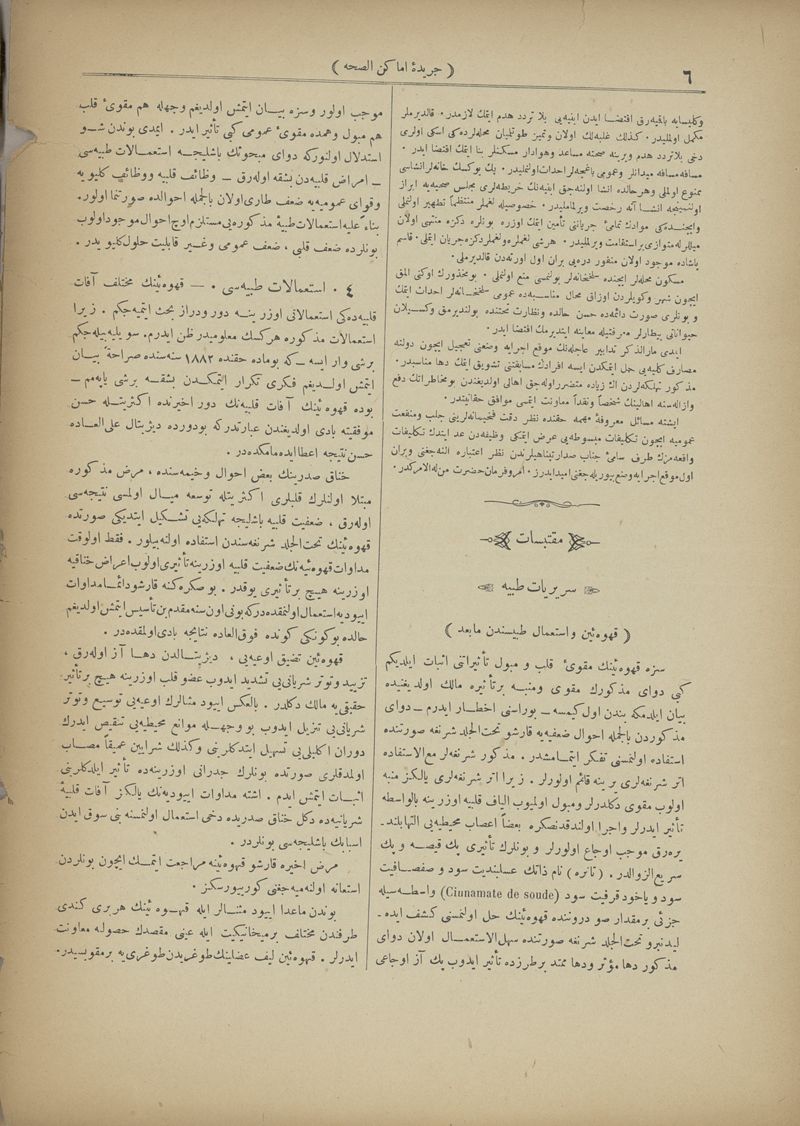 ٦
( جریدۀ اماکن الصحه )
وکلیسایه باقیه‌رق اقتضا ایدن ابنیه‌یی بلا تردد هدم ایتمك لازمدر . قالدیرملر
مکمل اولملیدر . کذلك غلبه‌لك اولان وتمیز طوتلیان محله‌لرده‌کی اسکی اولری
دخی بلاتردد هدم ویرینه صحته مساعد وهوادار مسکنلر بنا ایتمك اقتضا ایدر .
مسافه مسافه میدانلر وعمومی باغچه‌لر احداث اولنملیدر . پك یوکسك خانه‌لر انشاسی
ممنوع اولملی وهر حالده انشا اولنه‌جق ابنیه‌نك خریطه‌لری مجلس صحیه‌یه ابراز
اولنمینجه انشاآته رخصت ویرلماملیدر . خصوصیله لغملر منتظماً تطهیر اولنملی
وایچنده‌کی موادك تمامیٔ جریاننی تأمین ایتمك اوزره بونلره دکزه منتهی اولان
میللر له متوازی بر استقامت ویرلملیدر . هر شی لغملره ولغملر دکزه جریان ایتملی . قاسم
پاشاده موجود اولان منفور دره‌یی بران اول اورته‌دن قالدیرملی .
مسکون محله‌لر ایچنده سلخخانه‌لر بولنمسی منع اولنملی . بومحذورك اوکنی آلمق
ایچون شهر وکویلردن اوزاق محال مناسبه‌ده عمومی سلخخانه‌لر احداث ایتمك
و بونلری صورت دائمه‌ده حسن حالده ونظارت تحتنده بولندیرمق وکسیلان
حیواناتی بیطارلر معرفتیله معاینه ایتدیرمك اقتضا ایدر .
ایدی مارالذکر تدابیر عاجله‌نك موقع اجرایه وضعنی تعجیل ایچون دولته
مصارف کلیه‌یی حمل ایتمکدن ایسه افرادك مسابقتنی تشویق ایتمك دها مناسبدر .
مذکور تهلکه‌لردن اك زیاده متضرر اوله‌جق اهالی اولدیغندن بومخاطراتك دفع
وازاله‌سنه اهالینك شخصاً ونقداً معاونت ایتمسی موافق حقانیتدر .
ایشته مسائل معروفۀ مهمه حقنده نظر دقت فخیمانه‌لرینی جلب ومنفعت
عمومیه ایچون تکلیفات مبسوطه‌یی عرض ایتمکی وظیفه‌دن عد ایتدك تکلیفات
واقعه‌مزك طرف سامیٔ جناب صدارتپناهیلرندن نظر اعتباره آلنه‌جغنی وبران
اول موقع اجرایه وضع بیوریله‌جغنی امیدایدرز . امر وفرمان حضرت من له الامرکدر .
مقتبسات
سریریات طبیه
( قهوه‌ئین واستعمال طبیسندن مابعد )
سزه قهوه‌ئینك مقویٔ قلب و مبول تأثیراتنی اثبات ایلدیکم
کبی دوای مذکورك مقوی ومنبه برتأثیره مالك اولدیغنیده
بیان ایلدمکه بندن اول کیمسه ـ بوراسنی اخطار ایدرم ـ دوای
مذکوردن بالجمله احوال ضعفیه‌یه قارشو تحت‌الجلد شرنغه صورتنده
استفاده اولنمسنی تفکر ایتمامشدر . مذکور شرنغه‌لر مع الاستفاده
اتر شرنغه‌لری یرینه قائم اولورلر . زیرا اتر شرنغه‌لری یالکز منبه
اولوب مقوی دکلدرلر ومبول اولمیوب الیاف قلبیه اوزرینه بالواسطه
تأثیر ایدرلر واجرا اولندقدنصکره بعضاً اعصاب محیطیه‌یی التهابلند ـ
یره‌رق موجب اوجاع اولورلر و بونلرك تأثیری پك قیصه و پك
سریع الزوالدر . (تانره) نام ذاتك عسلبندیت سود و صفصافیت
سود و یاخود قرفیت سود (Cinnamate de soude) واسطه‌سیله
جزئی برمقدار صو دروننده قهوه‌ئینك حل اولنمسنی کشف ایده ـ
لیدنبرو تحت‌الجلد شرنغه صورتنده سهل‌الاستعمال اولان دوای
مذکور دها مؤثر ودها ممتد برطرزده تأثیر ایدوب پك آز اوجاعی
موجب اولور وسزه بیان ایتمش اولدیغم وجهله هم مقویٔ قلب
هم مبول وهمده مقویٔ عمومی کبی تأثیر ایدر . ایمدی بوندن شو
استدلال اولنورکه دوای مبحوثك باشلیجه استعمالات طبیه‌سی
ـ امراض قلبیه‌دن بشقه اوله‌رق ـ وظائف قلبیه ووظائف کلیویه
وقوای عمومیه‌یه ضعف طاری اولان بالجمله احوالده صورتنما اولور .
بناءً علیه استعمالات طبیۀ مذکوره‌یی مستلزم اوچ احوال موجود اولوب
بونلرده ضعف قلبی ، ضعف عمومی وغیر قابلیت حلول کلیویدر .
٤ . استعمالات طبیه‌سی . — قهوه‌ئینك مختلف آفات
قلبیه‌ده‌کی استعمالاتی اوزرینه دور ودراز بحث ایتمیه‌جکم . زیرا
استعمالات مذکوره هرکسك معلومیدر ظن ایدرم . سویلیه‌بیله‌جکم
برشی وار ایسه ـ که بوماده حقنده ١٨٨٢ سنه‌سنده صراحةً بیان
ایتمش اولدیغم فکری تکرار ایتمکدن بشقه برشی یاپه‌مم ـ
بوده قهوه‌ئینك آفات قلبیه‌نك دور اخیرنده اکثریتله حسن
موفقیته بادی اولدیغندن عبارتدرکه بودورده دیژیتال علی‌العاده
حسن نتیجه اعطا ایده‌مامکده‌در .
خناق صدرینك بعض احوال وخیمه‌سنده ، مرض مذکوره
مبتلا اولنلرك قلبلری اکثریتله توسعه میال اولمسی نتیجه‌سی
اوله‌رق ، ضعفیت قلبیه باشلیجه تهلکه‌یی تشکیل ایتدیکی صورتده
قهوه‌ئینك تحت‌الجلد شرنغه‌سندن استفاده اولنه‌بیلور . فقط اولوقت
مداوات قهوه‌ئیه‌نك ضعفیت قلبیه اوزرینه تأثیری اولوب اعراض خناقیه
اوزرینه هیچ برتأثیری یوقدر . بوصکره‌کنه قارشو دائما مداوات
ایبودیه استعمال اولنمقده‌درکه بونی اون سنه مقدم بن تأسیس ایتمش اولدیغم
حالده بوکونکی کونده فوق‌العاده نتایجه بادی اولمقده‌در .
قهوه‌ئین تضیق اوعیه‌یی ، دیژیتالدن دها آز اوله‌رق ،
تزیید وتوتر شریانی‌یی تشدید ایدوب عضو قلب اوزرینه هیچ برتأثیر
حقیقی‌یه مالك دکلدر . بالعکس ایبود مثالرك اوعیه‌یی توسیع وتوتر
شریانی‌یی تنزیل ایدوب بو وجهله موانع محیطیه‌یی تنقیص ایدرك
دوران اکلیلی‌یی تسهیل ایتدکلرینی وکذلك شرایین عمیقاً مصاب
اولدقلری صورتده بونلرك جدرانی اوزرینه‌ده تأثیر ایلدکلرینی
اثبات ایتمش ایدم . اشته مداوات ایبودیه‌نك یالکز آفات قلبیۀ
شریانیه‌ده دکل خناق صدریده دخی استعمال اولنمسنه بنی سوق ایدن
اسبابك باشلیجه‌سی بونلردر .
مرض اخیره قارشو قهوه‌ئینه مراجعت ایتمك ایچون بونلردن
استعانه اولنه‌میه‌جغنی کوریورسکز .
بوندن ماعدا ایبود مثنالر ایله قهوه‌ئینك هربری کندی
طرفندن مختلف بر میخانیکیت ایله عینی مقصدك حصولنه معاونت
ایدرلر . قهوه‌ئین لیف عضلینك طوغریدن طوغری‌یه برمقویسیدر .